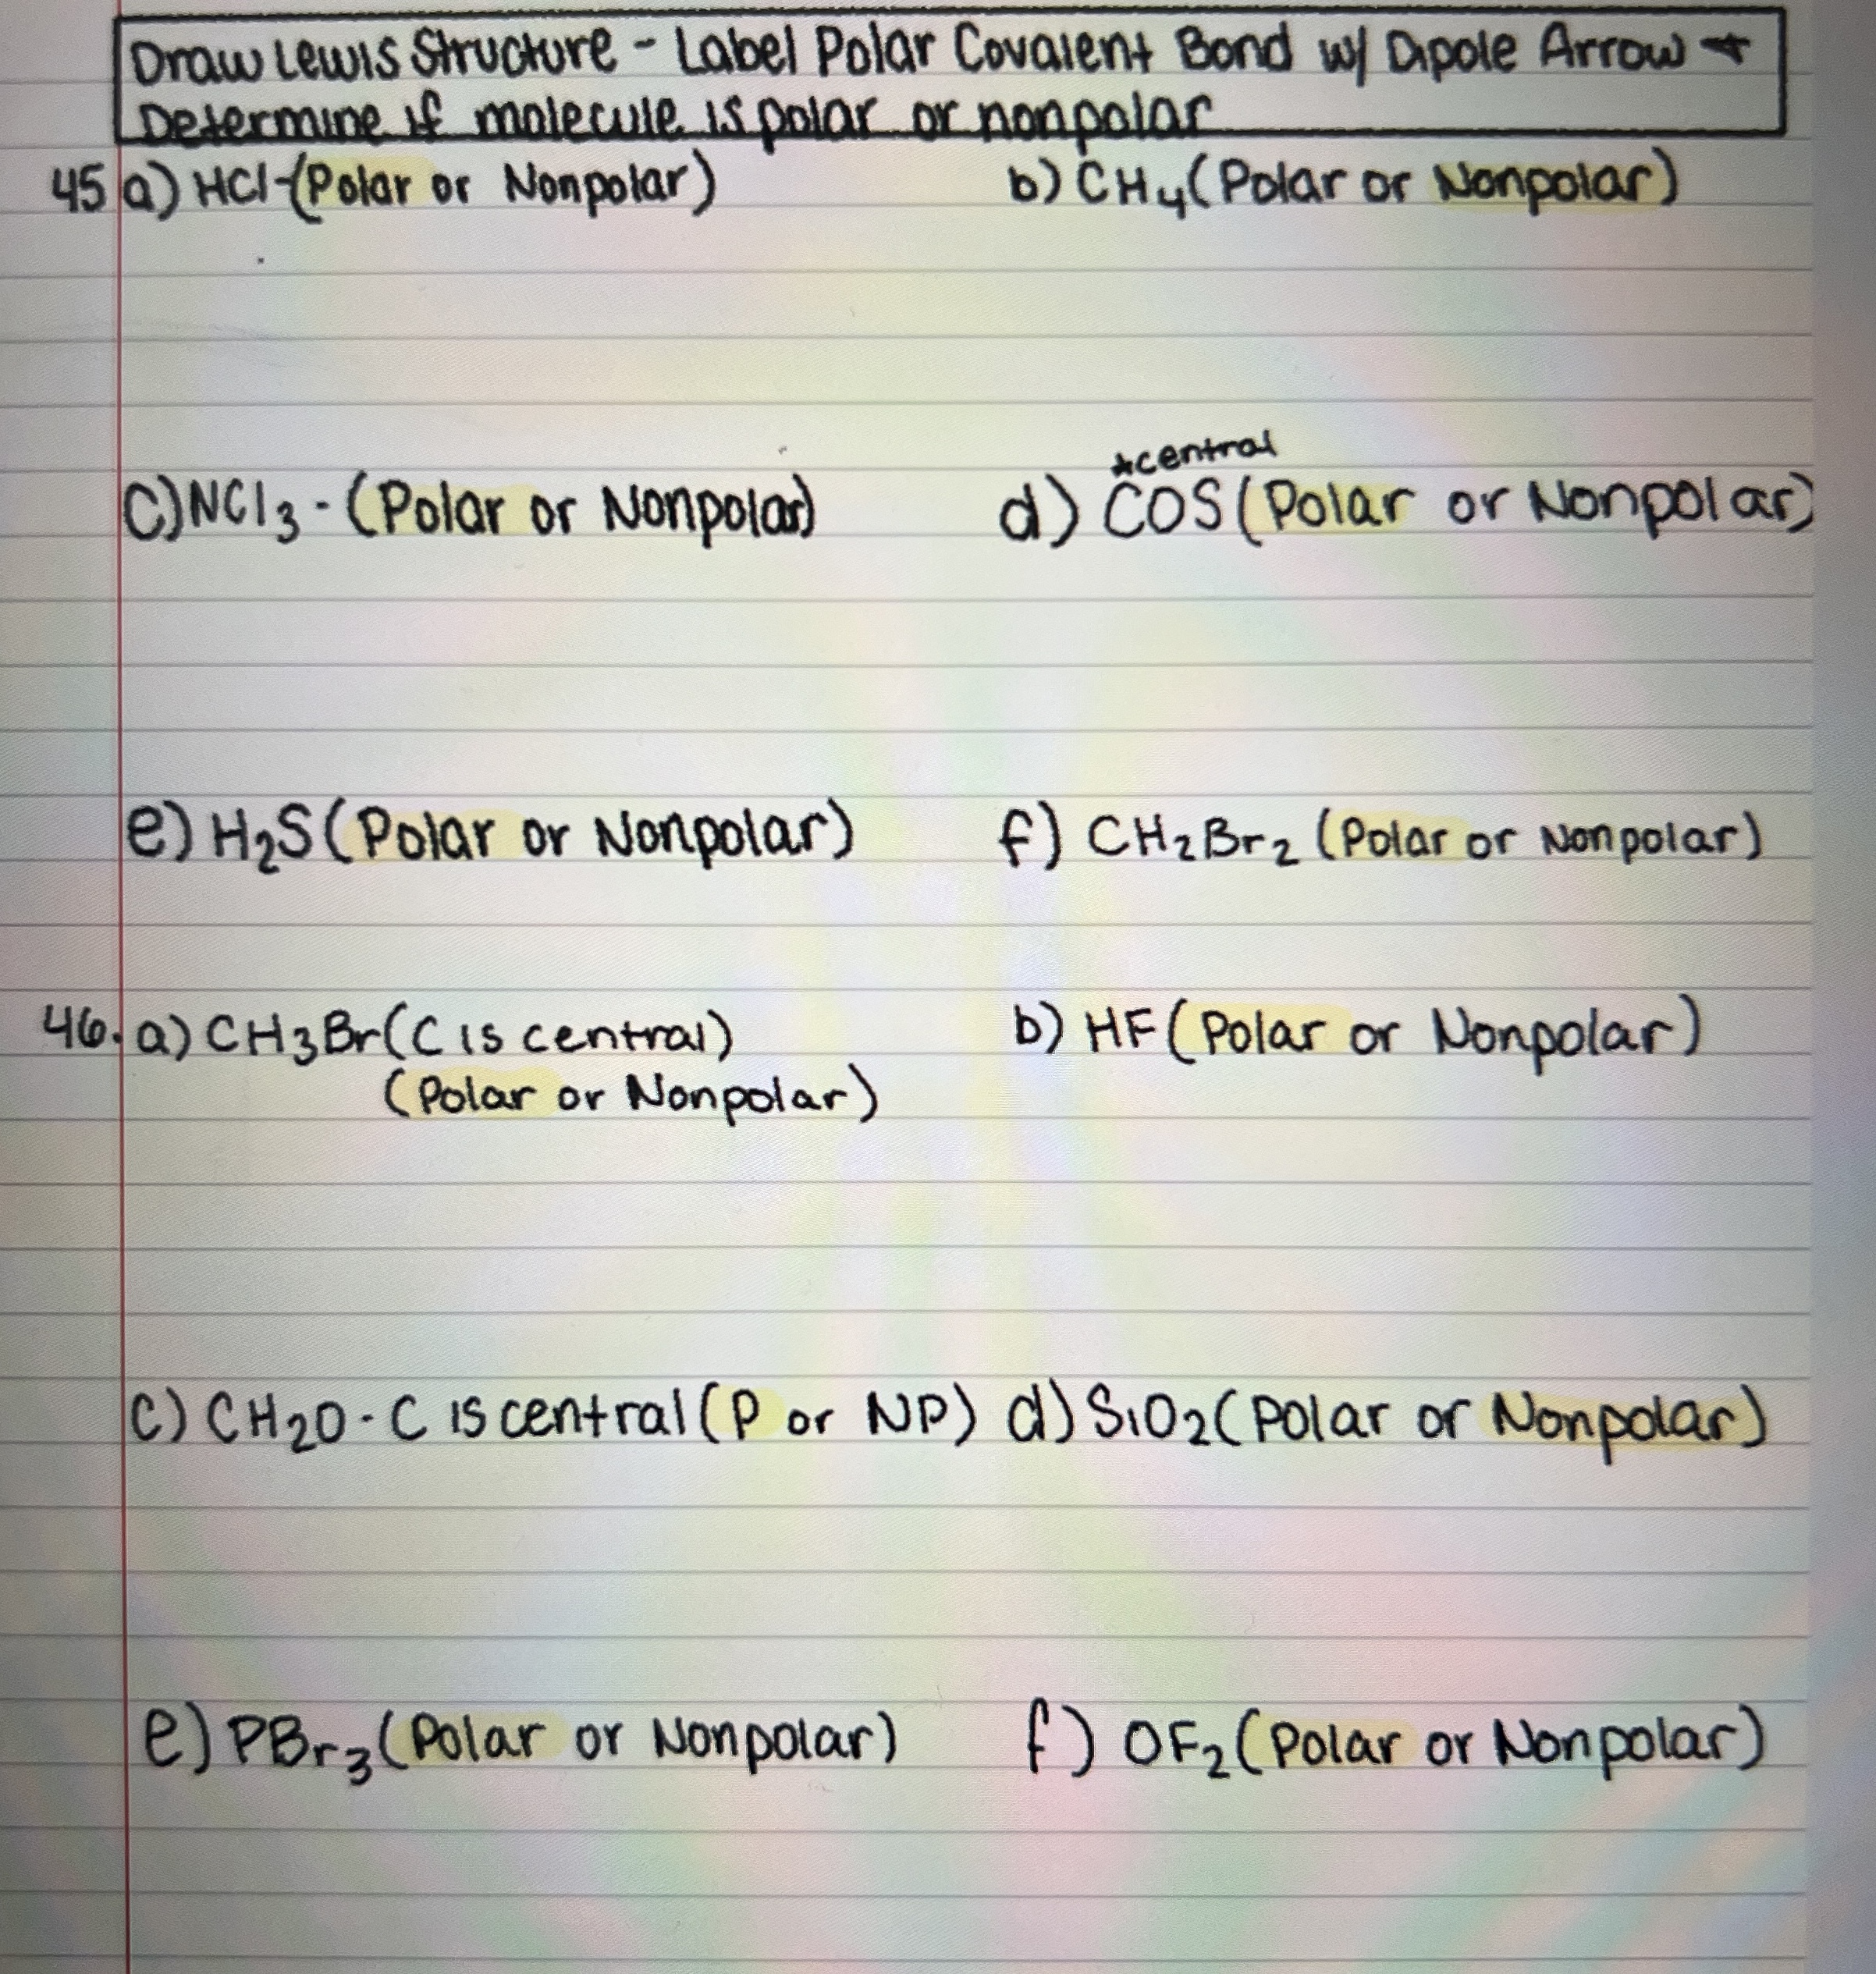 Draw Lewis Structure - Label Polar Covalent Bond w/ Dipole Arrow +
Determine if molecule is polar or nonpolar
45 a) HCl-(Polar or Nonpolar)
b) CH₄(Polar or Nonpolar)
c) NCl₃ - (Polar or Nonpolar)
*central
d) COS (Polar or Nonpolar)
e) H₂S (Polar or Nonpolar)
f) CH₂Br₂ (Polar or Nonpolar)
46. a) CH₃Br (C is central)
(Polar or Nonpolar)
b) HF (Polar or Nonpolar)
c) CH₂O - C is central (P or NP)
d) SiO₂ (Polar or Nonpolar)
e) PBr₃ (Polar or Nonpolar)
f) OF₂ (Polar or Nonpolar)